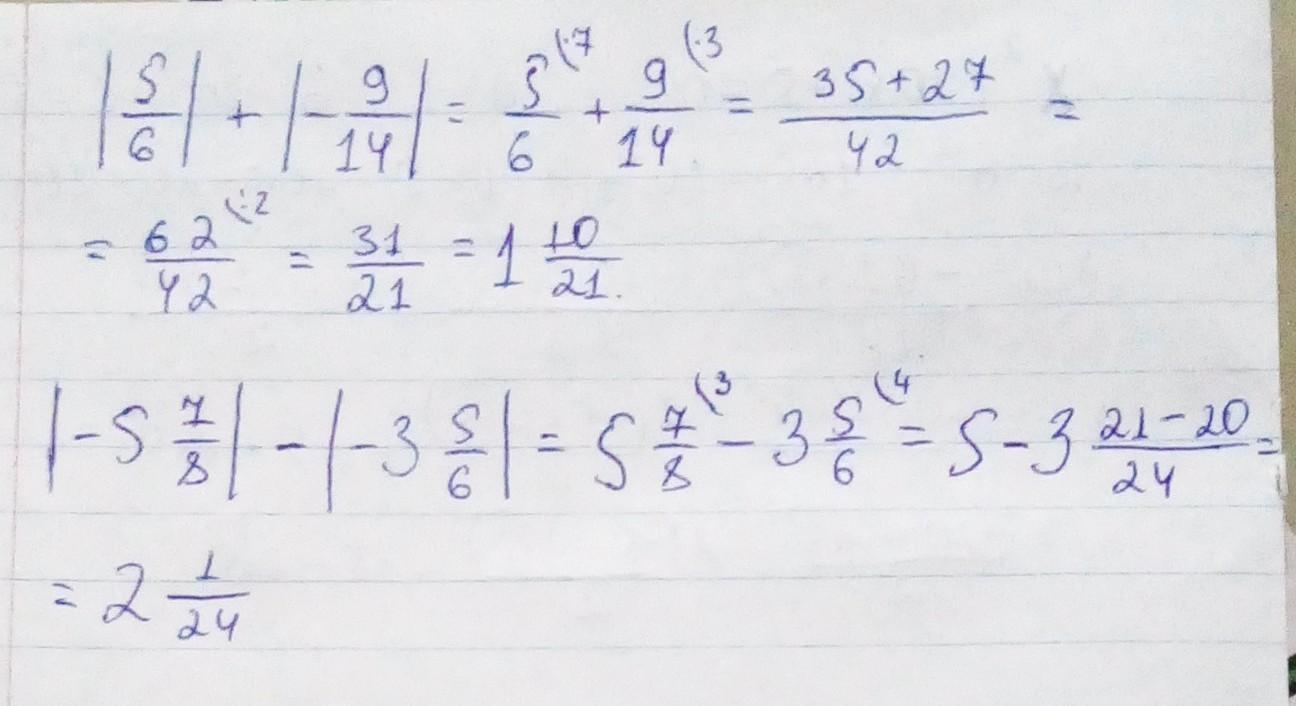 |5/6| + |-9/14| = 5/6 (·7 + 9/14 (·3 = (35+27)/42 =
= 62/42 (:2 = 31/21 = 1 10/21.
|-5 7/8| - |-3 5/6| = 5 7/8 (3 - 3 5/6 (4 = 5-3 (21-20)/24 =
= 2 1/24